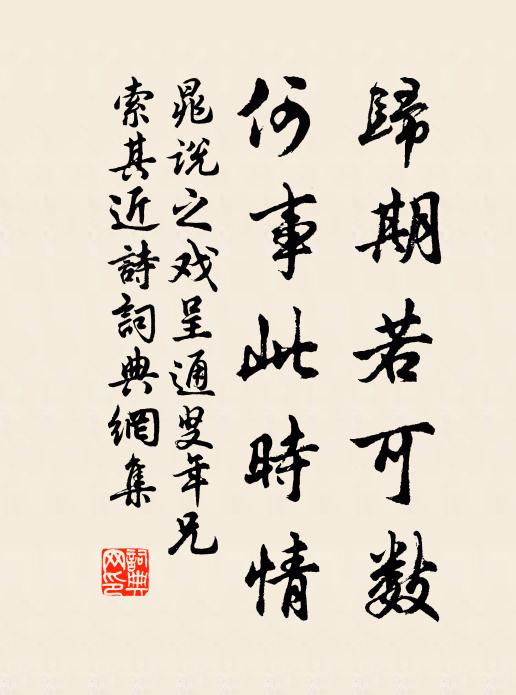 歸期若可數
何事此時情
晁說之戏呈通叟年兄
索其近詩詞典網集
詞典网印